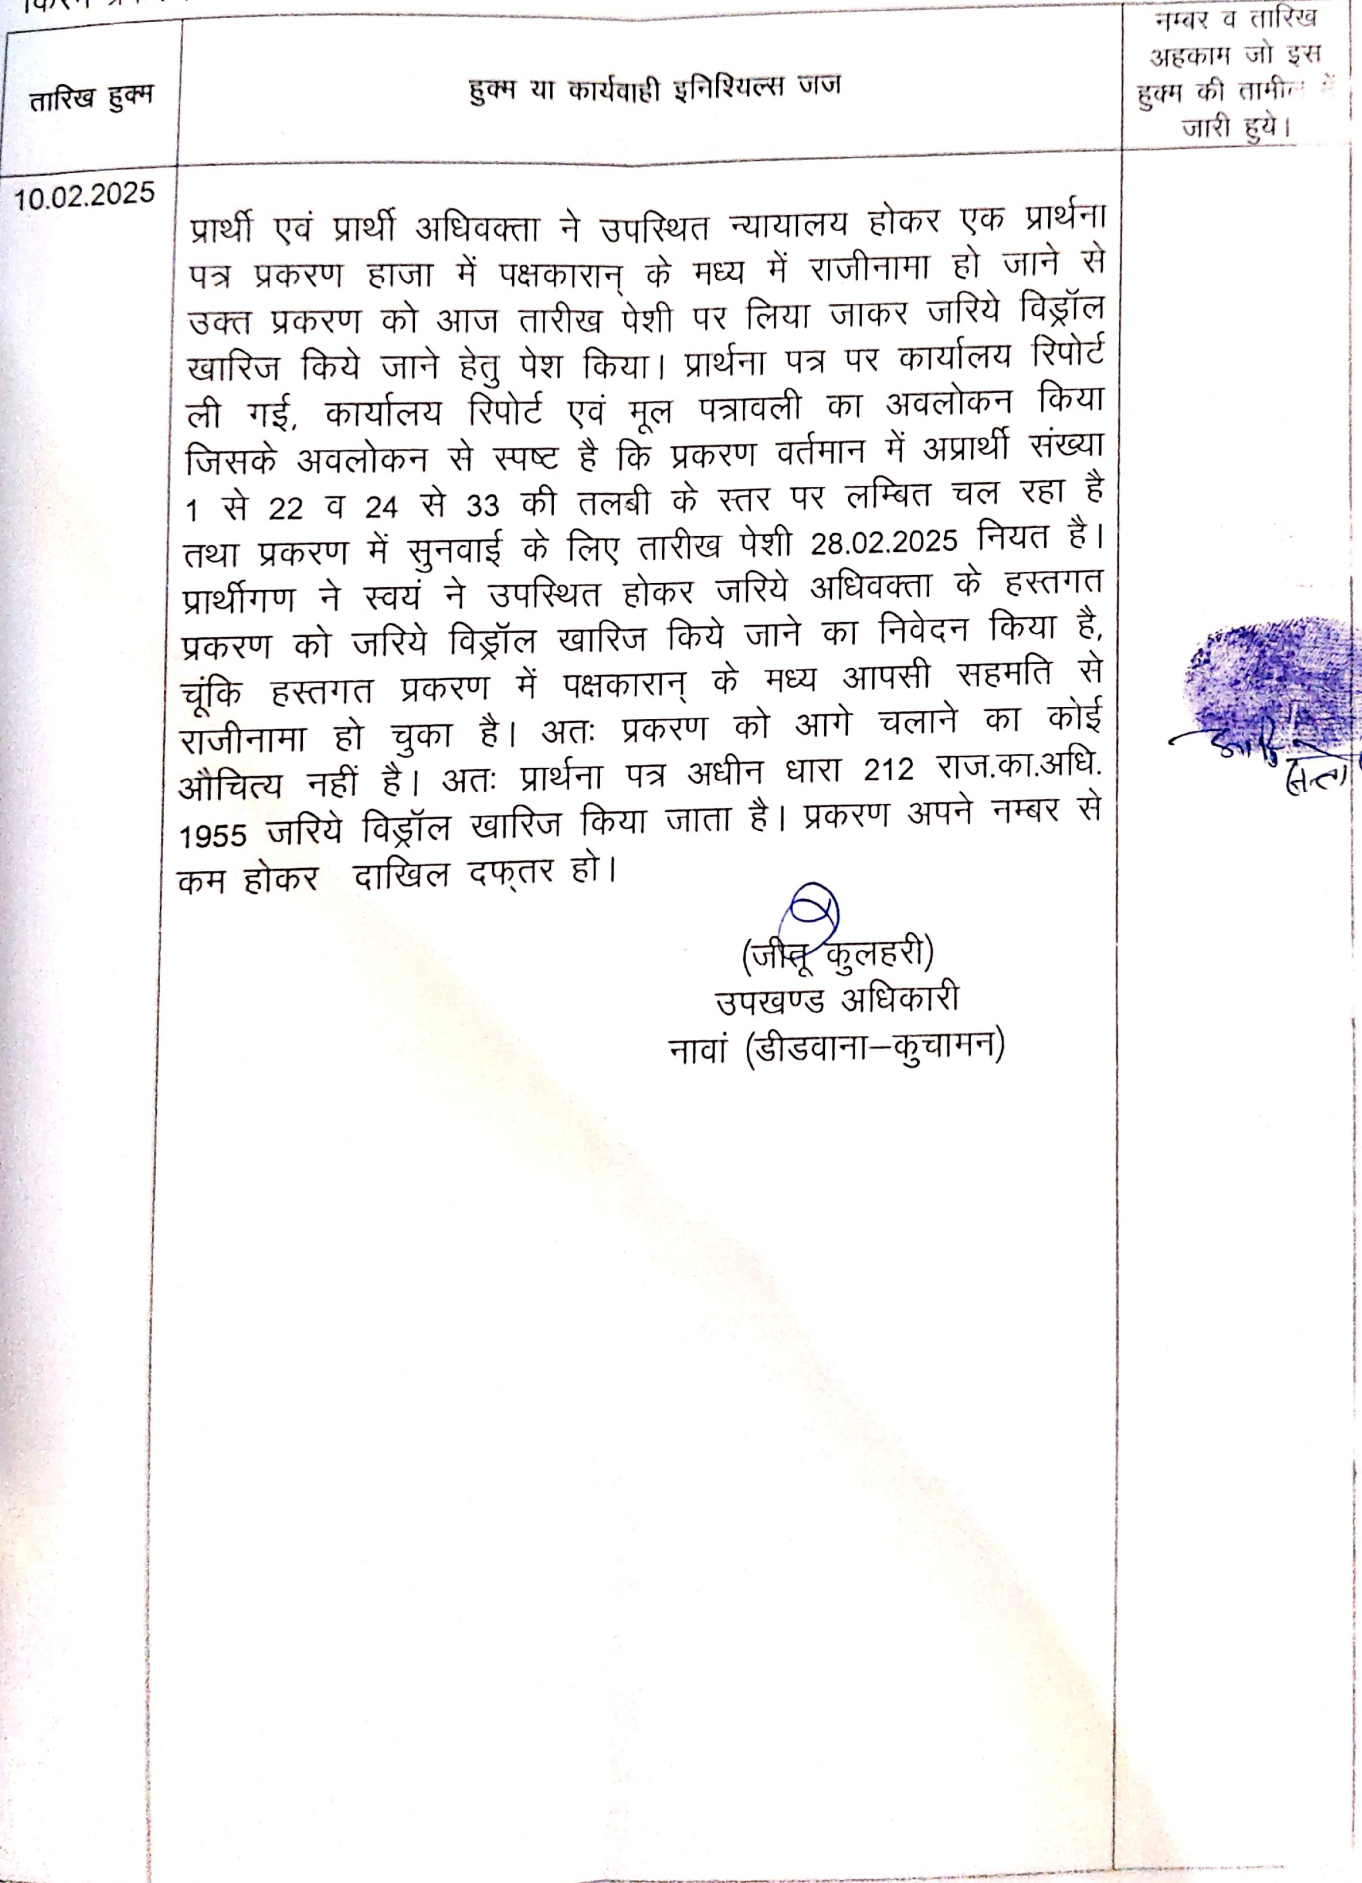 तारिख हुक्म
हुक्म या कार्यवाही इनिशियल्स जज
नम्बर व तारिख
अहकाम जो इस
हुक्म की तामील में
जारी हुये।
10.02.2025
प्रार्थी एवं प्रार्थी अधिवक्ता ने उपस्थित न्यायालय होकर एक प्रार्थना
पत्र प्रकरण हाजा में पक्षकारान् के मध्य में राजीनामा हो जाने से
उक्त प्रकरण को आज तारीख पेशी पर लिया जाकर जरिये विड्रॉल
खारिज किये जाने हेतु पेश किया। प्रार्थना पत्र पर कार्यालय रिपोर्ट
ली गई, कार्यालय रिपोर्ट एवं मूल पत्रावली का अवलोकन किया
जिसके अवलोकन से स्पष्ट है कि प्रकरण वर्तमान में अप्रार्थी संख्या
1 से 22 व 24 से 33 की तलबी के स्तर पर लम्बित चल रहा है
तथा प्रकरण में सुनवाई के लिए तारीख पेशी 28.02.2025 नियत है।
प्रार्थीगण ने स्वयं ने उपस्थित होकर जरिये अधिवक्ता के हस्तगत
प्रकरण को जरिये विड्रॉल खारिज किये जाने का निवेदन किया है,
चूंकि हस्तगत प्रकरण में पक्षकारान् के मध्य आपसी सहमति से
राजीनामा हो चुका है। अतः प्रकरण को आगे चलाने का कोई
औचित्य नहीं है। अतः प्रार्थना पत्र अधीन धारा 212 राज.का.अधि.
1955 जरिये विड्रॉल खारिज किया जाता है। प्रकरण अपने नम्बर से
कम होकर दाखिल दफ्तर हो।
(जीतू कुलहरी)
उपखण्ड अधिकारी
नावां (डीडवाना–कुचामन)